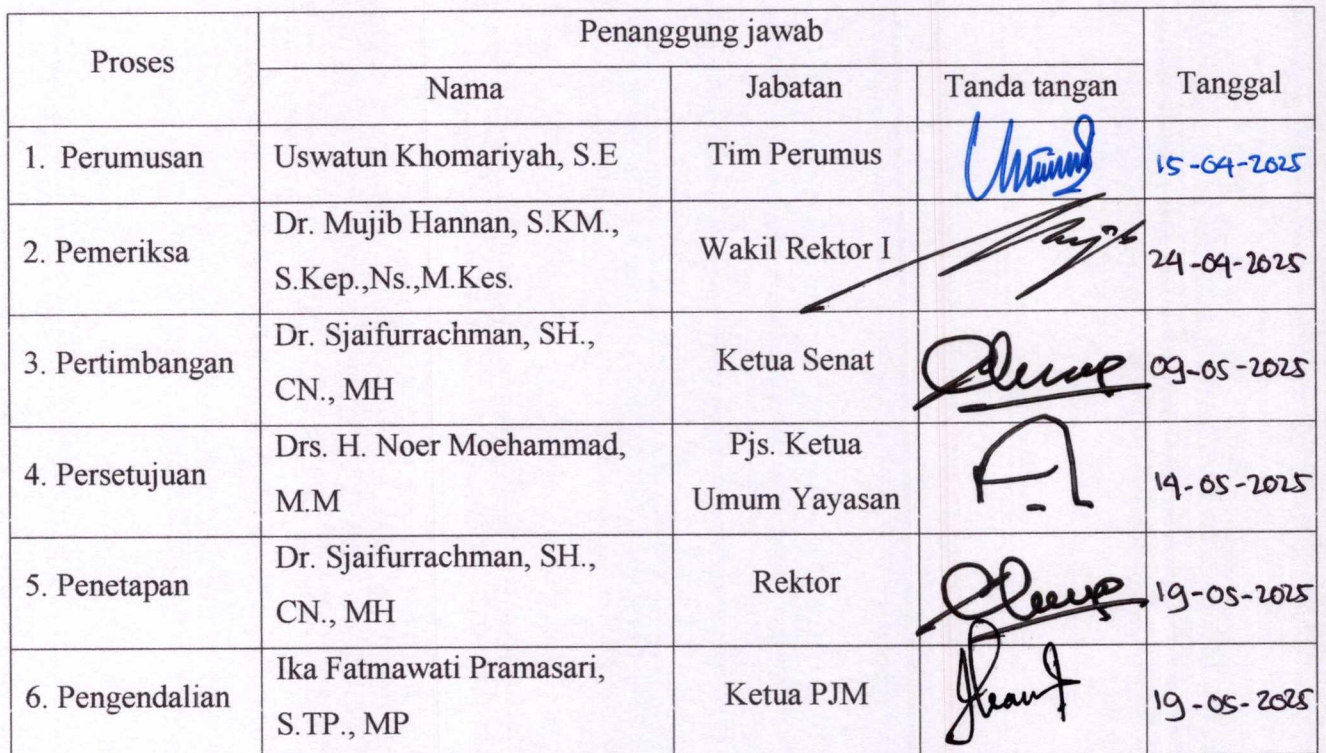 Proses
Penanggung jawab
Tanggal
Nama
Jabatan
Tanda tangan
1. Perumusan
Uswatun Khomariyah, S.E
Tim Perumus
15-04-2025
2. Pemeriksa
Dr. Mujib Hannan, S.KM.,
S.Kep.,Ns.,M.Kes.
Wakil Rektor I
24-04-2025
3. Pertimbangan
Dr. Sjaifurrachman, SH.,
CN., MH
Ketua Senat
09-05-2025
4. Persetujuan
Drs. H. Noer Moehammad,
M.M
Pjs. Ketua
Umum Yayasan
14-05-2025
5. Penetapan
Dr. Sjaifurrachman, SH.,
CN., MH
Rektor
19-05-2025
6. Pengendalian
Ika Fatmawati Pramasari,
S.TP., MP
Ketua PJM
19-05-2025